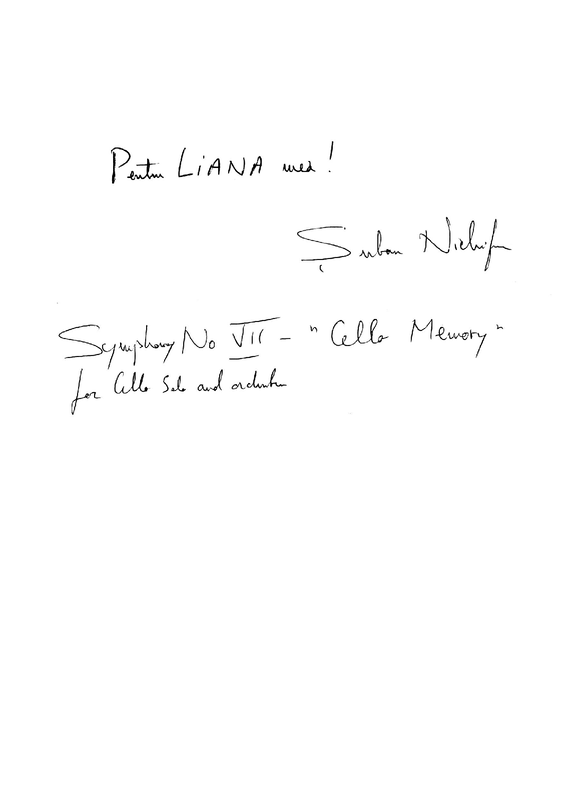 Pentru LIANA mea!
Șerban Nichifor
Symphony No VII - "Cello Memory"
for Cello Solo and orchestra